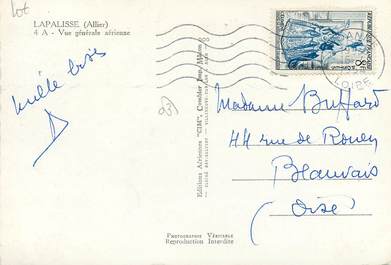 lot
LAPALISSE (Allier)
4 A - Vue générale aérienne
mille bises
Madame Buffard
44 rue de Rouen
Beauvais
(Oise)
LOIRE
Editions Aériennes "CIM", Combier Imp. Mâcon
PHOTOGRAPHIE VÉRITABLE
Reproduction Interdite